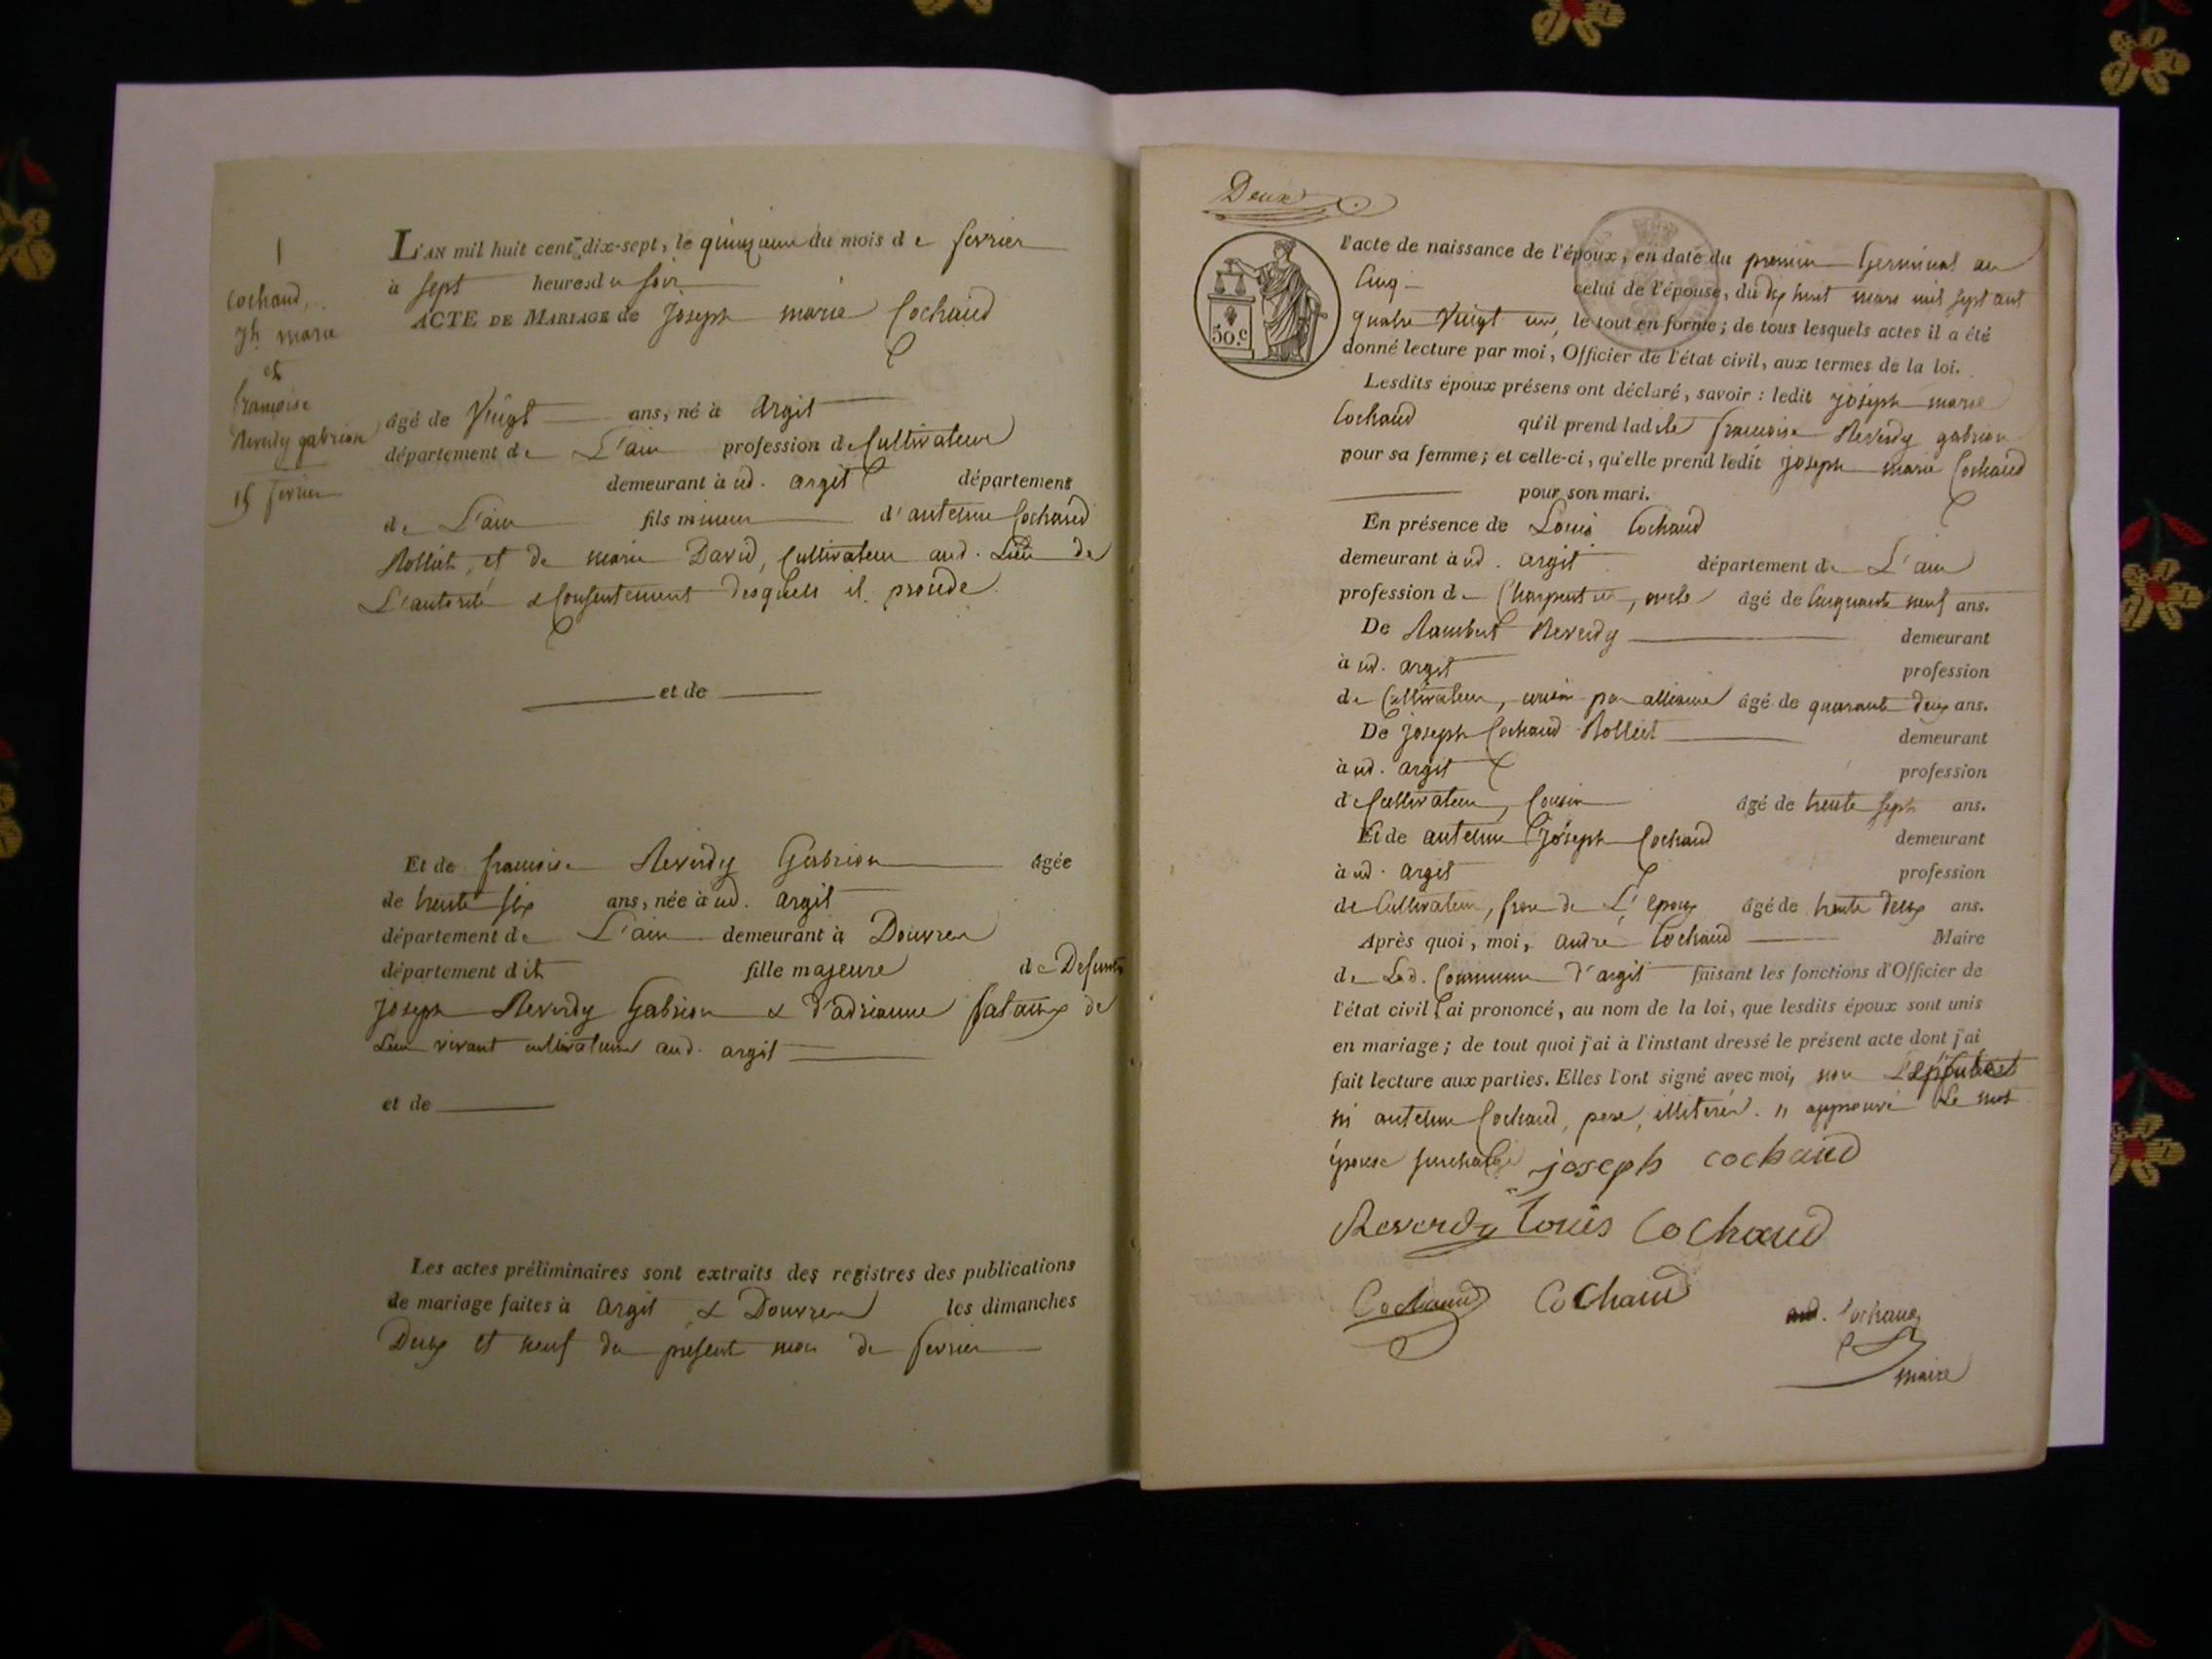 1
Cochaud,
Jh marie
et
françoise
Reverdy gabrion
15 fevrier
L'AN mil huit cent dix-sept, le quinzieme du mois de fevrier
à sept heures du soir
ACTE DE MARIAGE de Joseph marie Cochaud
âgé de Vingt ans, né à Argit
département de L'ain profession de Cultivateur
demeurant à ud. argit département
de L'ain fils mineur d'antelme Cochaud
Rolliet, et de marie David, Cultivateur aud. Lieu de
L'autorité & Consentement desquels il procede
et de
Et de françoise Reverdy Gabrion âgée
de trente six ans, née à ud. argit
département de L'ain demeurant à Douvren
département dit fille majeure de Defunts
joseph Reverdy Gabrion & d'adrianne fataux de
Leur vivant cultivateurs aud. argit
et de
Les actes préliminaires sont extraits des registres des publications
de mariage faites à Argit & Douvren les dimanches
Deux et neuf du present mois de fevrier
Deux
50.c
l'acte de naissance de l'époux, en date du premier Germinal an
Cinq celui de l'épouse, du dix huit mars mil sept cent
quatre Vingt un, le tout en forme; de tous lesquels actes il a été
donné lecture par moi, Officier de l'état civil, aux termes de la loi.
Lesdits époux présens ont déclaré, savoir: ledit joseph marie
Cochaud qu'il prend ladite francoise Reverdy gabrion
pour sa femme; et celle-ci, qu'elle prend ledit Joseph marie Cochaud
pour son mari.
En présence de Louis Cochaud
demeurant à ud. argit département de L'ain
profession de Charpentier, oncle âgé de Cinquante neuf ans.
De Rambert Reverdy demeurant
à ud. argit profession
de Cultivateur, cousin par alliance âgé de quarante deux ans.
De joseph Cochaud Rolliet demeurant
à ud. argit profession
de Cultivateur, Cousin âgé de trente sept ans.
Et de antelme Joseph Cochaud demeurant
à ud. argit profession
de Cultivateur, frere de L'epoux âgé de trente deux ans.
Après quoi, moi, andré Cochaud Maire
de Lad. Commune d'argit faisant les fonctions d'Officier de
l'état civil, ai prononcé, au nom de la loi, que lesdits époux sont unis
en mariage; de tout quoi j'ai à l'instant dressé le présent acte dont j'ai
fait lecture aux parties. Elles l'ont signé avec moi, non
ni antelme Cochaud, pere, illiterés. approuvé Le mot
épouse surchargé joseph cochaud
Reverdy Louis Cochaud
Cochaud Cochaud
and. Cochaud
maire